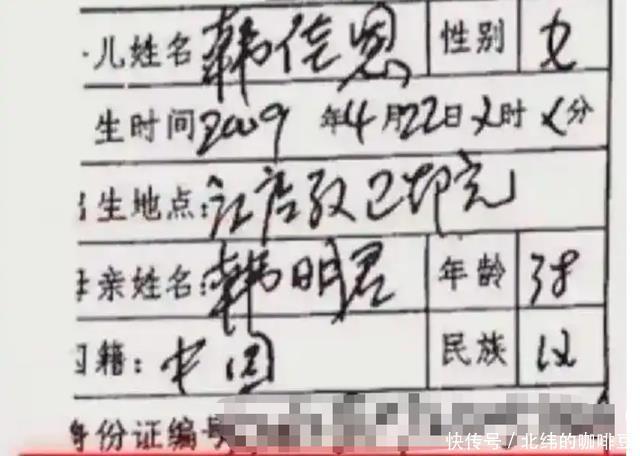 儿姓名 韩佳恩 性别 女
生时间 2009 年 4 月 22 日 X 时 X 分
生地点:江店
母亲姓名:韩明君 年龄
国籍:中国 民族 汉
身份证编号
快传号/北纬的咖啡豆